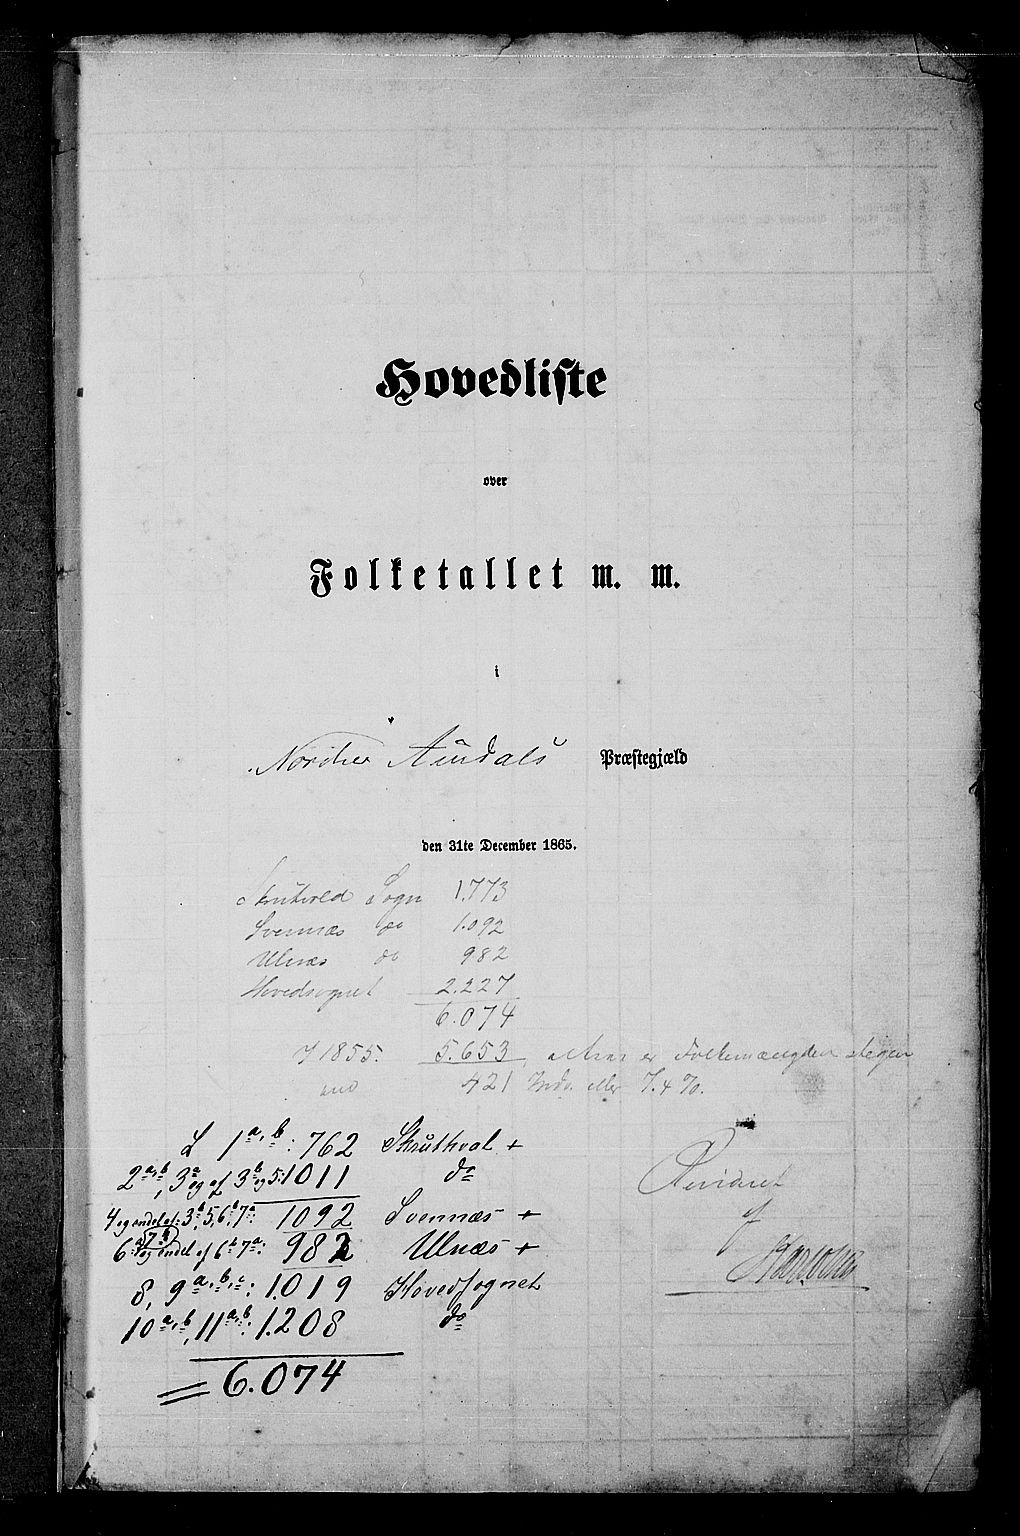 Hovedliste
over
Folketallet m. m.
i
Nordre Aurdals Præstegjæld
den 31te December 1865.
Skrutvold Sogn 1.773
Svennæs do 1.092
Ulnæs do 982
Hovedsognet 2.227
6.074
I 1855. 5.653, altsaa er Folkemængden stegen
med 421 Indv. eller 7.4 %.
L 1a,b: 762 Skruthval +
2a,b, 3a og af 3b og 5: 1011 do
4 og endel af: 3b, 5, 6b, 7a 1092 Svennæs +
6a og endel af 6b 7a: 982 Ulnæs +
8, 9a,b,c: 1.019 Hovedsognet
10a,b, 11a,b: 1.208 do
6.074
Revideret
af